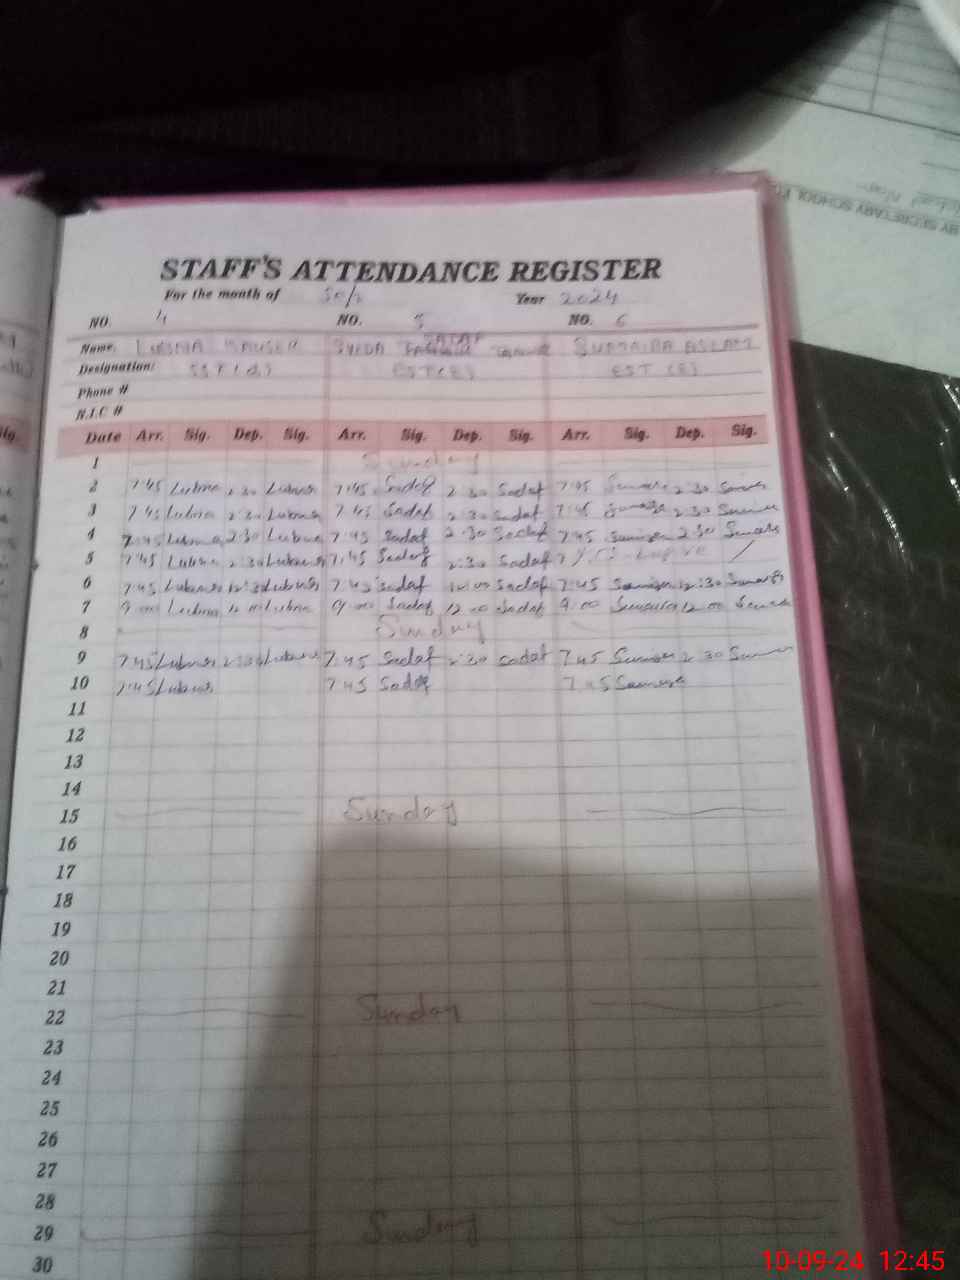 BY SECRETARY SCHOOL
STAFF'S ATTENDANCE REGISTER
For the month of Year 2024
NO. 4 NO. 5 NO. 6
Name: LUBNA KAUSER SYEDA SADAF SUMAIRA ASLAM
Designation: EST (E) EST (E)
Phone #
N.I.C #
Sig. Date Arr. Sig. Dep. Sig. Arr. Sig. Dep. Sig. Arr. Sig. Dep. Sig.
1 Sunday
2 7:45 Lubna 2:30 Lubna 7:45 Sadaf 2:30 Sadaf 7:45 2:30
3 7:45 Lubna 2:30 Lubna 7:45 Sadaf 2:30 Sadaf 7:45 2:30
4 7:45 Lubna 2:30 Lubna 7:45 Sadaf 2:30 Sadaf 7:45 2:30
5 7:45 Lubna 2:30 Lubna 7:45 Sadaf 2:30 Sadaf
6 7:45 Lubna 12:30 Lubna 7:45 Sadaf Sadaf 7:45 12:30
7 9:00 Lubna 12:00 Lubna 9:00 Sadaf 12:00 Sadaf 9:00 12:00
8 Sunday
9 7:45 Lubna 2:30 Lubna 7:45 Sadaf 2:30 Sadaf 7:45 2:30
10 7:45 Lubna 7:45 Sadaf 7:45
11
12
13
14
15 Sunday
16
17
18
19
20
21
22 Sunday
23
24
25
26
27
28
29 Sunday
30
10-09-24 12:45